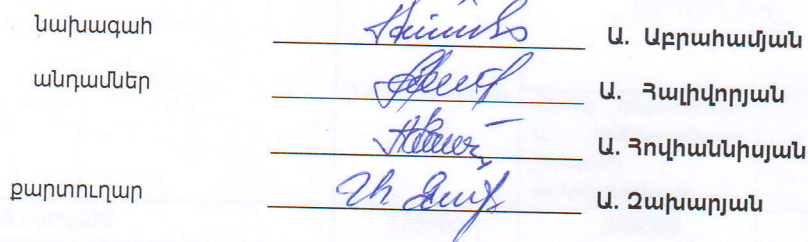 նախագահ Ա. Աբրահամյան
անդամներ Ա. Հալիվորյան
Ա. Հովհաննիսյան
քարտուղար Ա. Զախարյան